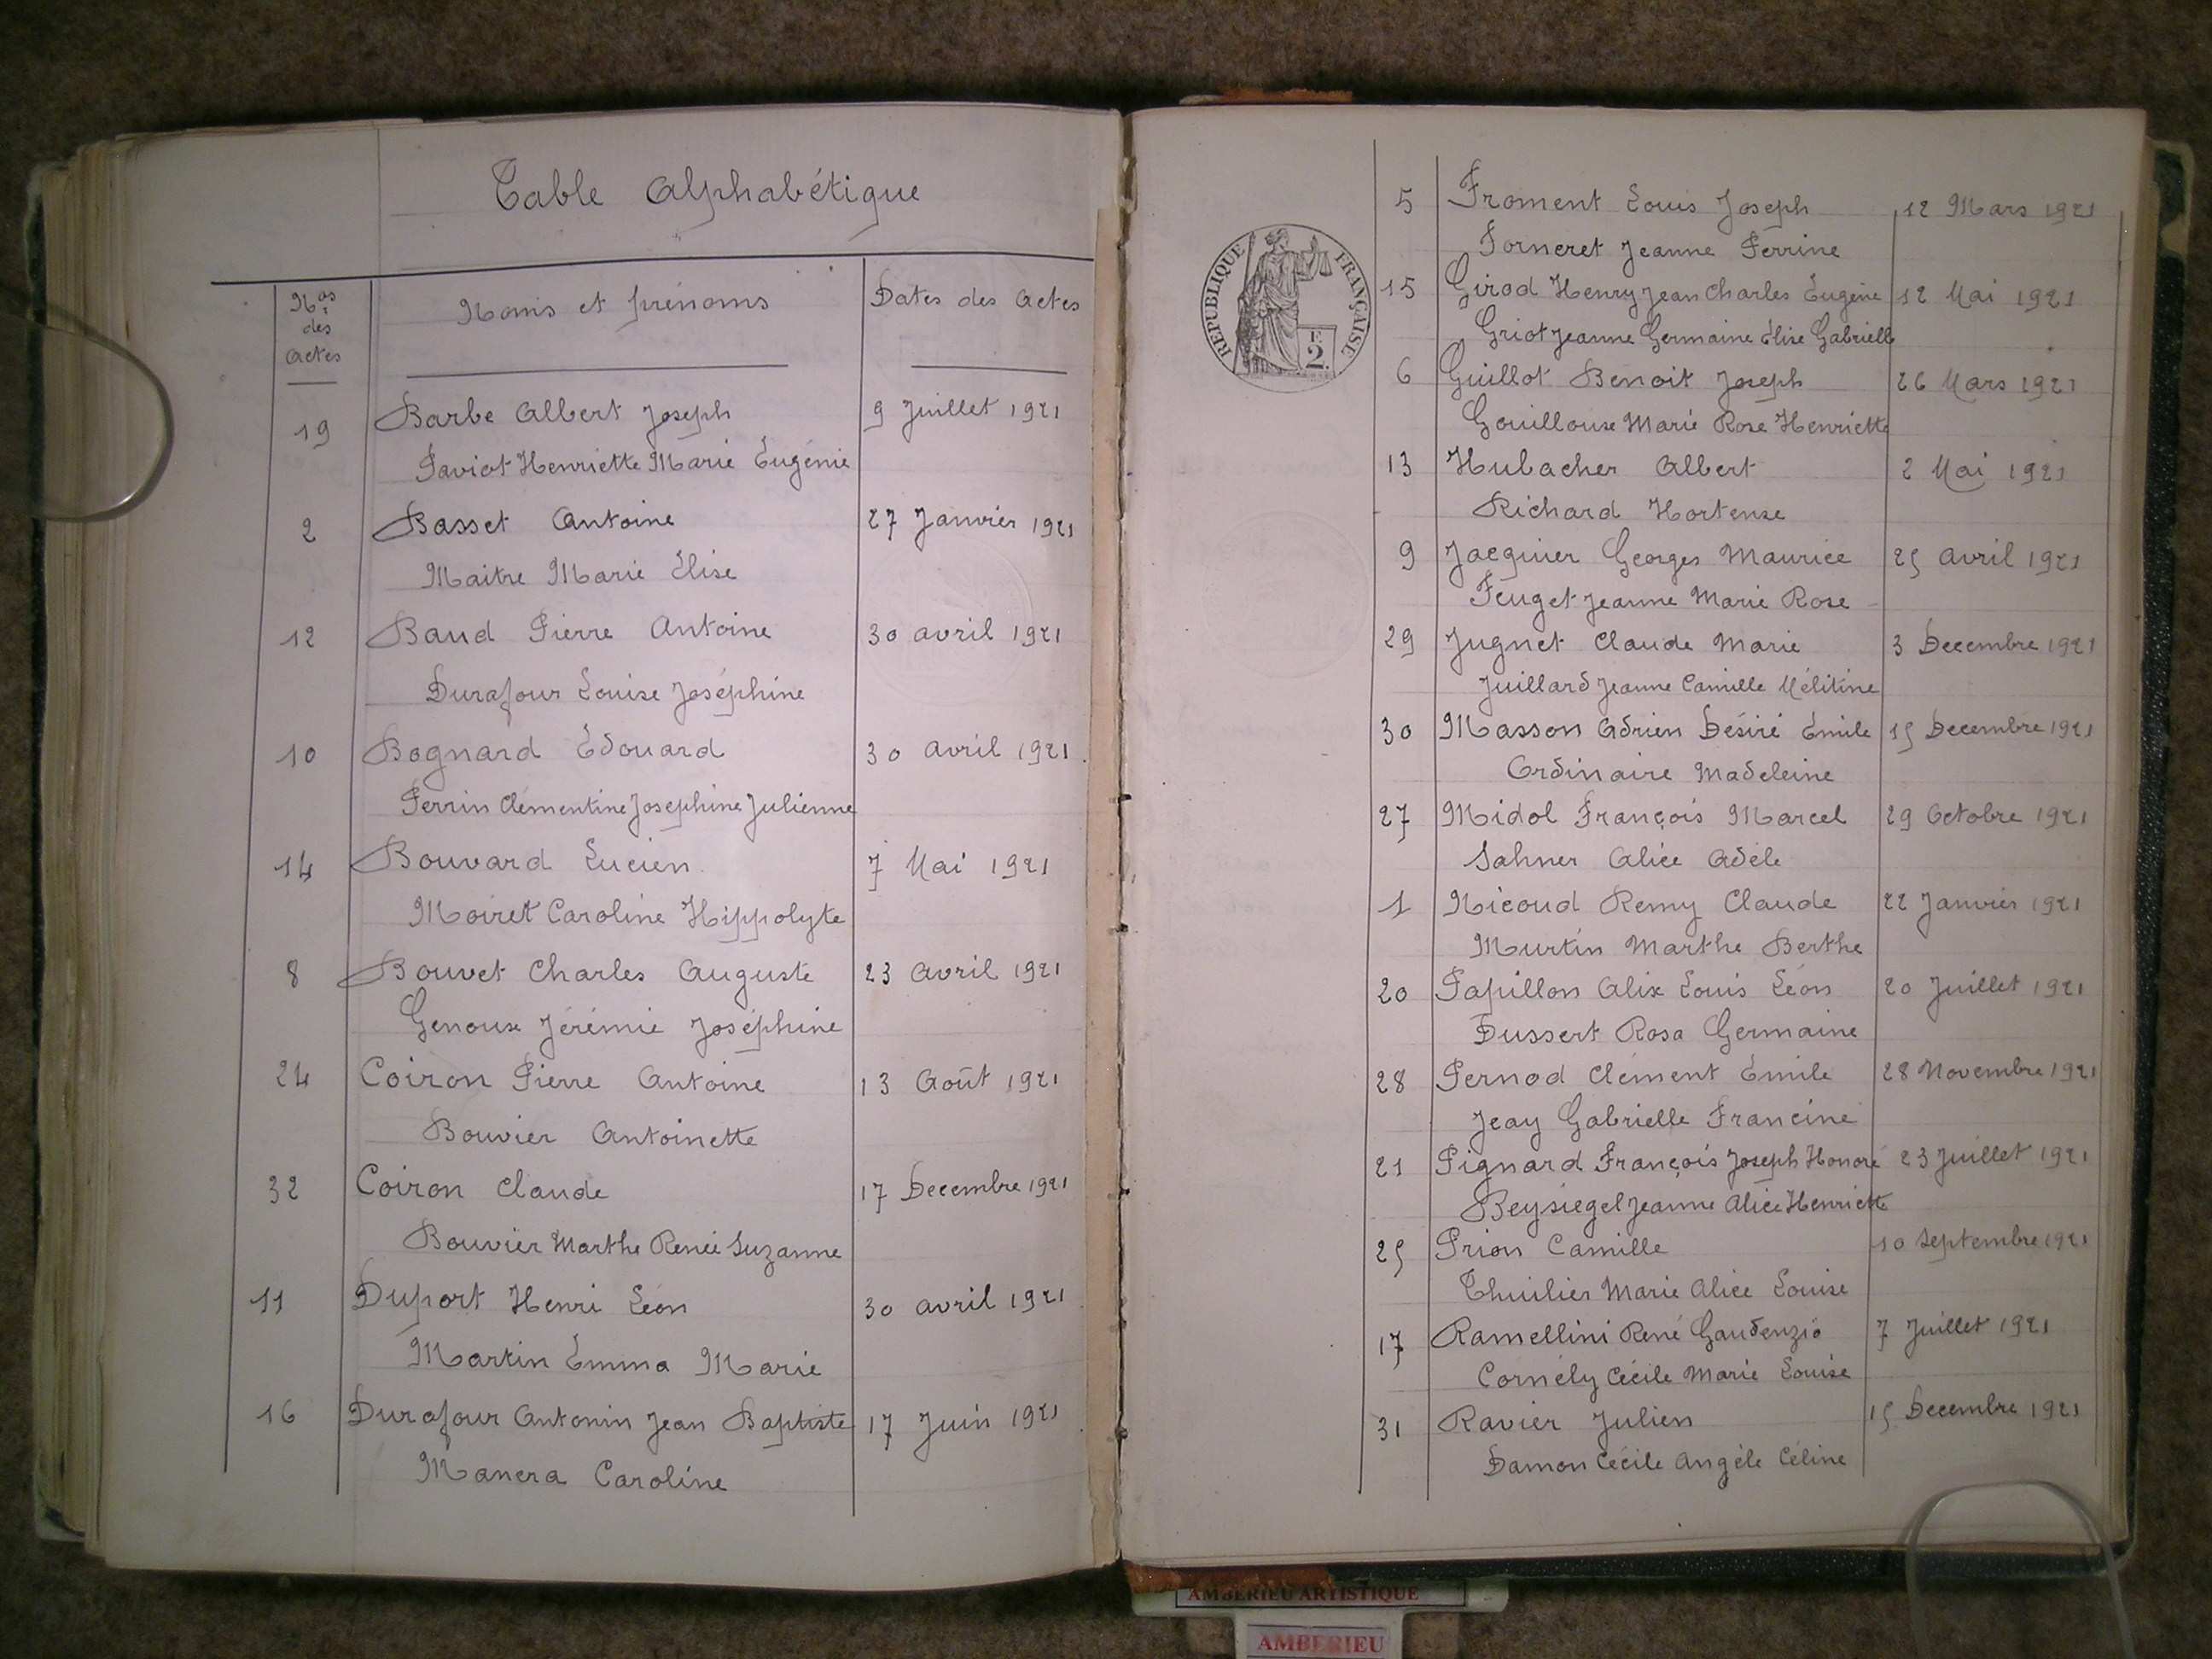 Table Alphabétique
Nos des Actes
Noms et prénoms
Dates des Actes
19 Barbe Albert Joseph 9 Juillet 1921
Paviot Henriette Marie Eugénie
2 Basset Antoine 27 Janvier 1921
Maitre Marie Élise
12 Baud Pierre Antoine 30 avril 1921
Durafour Louise Joséphine
10 Bognard Édouard 30 avril 1921
Perrin Clémentine Josephine Julienne
14 Bouvard Lucien 7 Mai 1921
Moiret Caroline Hippolyte
8 Bouvet Charles Auguste 23 avril 1921
Genoux Jérémie Joséphine
24 Coiron Pierre Antoine 13 Août 1921
Bouvier Antoinette
32 Coiron Claude 17 Decembre 1921
Bouvier Marthe Renée Suzanne
11 Duport Henri Léon 30 avril 1921
Martin Emma Marie
16 Durafour Antonin Jean Baptiste 17 Juin 1921
Manera Caroline
RÉPUBLIQUE FRANÇAISE
F.
2.
5 Froment Louis Joseph 12 Mars 1921
Forneret Jeanne Perrine
15 Girod Henry Jean Charles Eugène 12 Mai 1921
Griot Jeanne Germaine Élise Gabrielle
6 Guillot Benoit Joseph 26 Mars 1921
Gouilloux Marie Rose Henriette
13 Hubacher Albert 2 Mai 1921
Richard Hortense
9 Jacquier Georges Maurice 25 avril 1921
Feuget Jeanne Marie Rose
29 Jugnet Claude Marie 3 Decembre 1921
Juillard Jeanne Camille Mélitine
30 Masson Adrien Désiré Émile 15 Decembre 1921
Ordinaire Madeleine
27 Midol François Marcel 29 Octobre 1921
Sahner Alice Adèle
1 Nicoud Remy Claude 22 Janvier 1921
Murtin Marthe Berthe
20 Papillon Alix Louis Léon 20 Juillet 1921
Dussert Rosa Germaine
28 Pernod Clément Émile 28 Novembre 1921
Jeay Gabrielle Francine
21 Pignard François Joseph Honoré 23 Juillet 1921
Beysiegel Jeanne Alice Henriette
25 Prion Camille 10 Septembre 1921
Thuilier Marie Alice Louise
17 Ramellini René Gaudenzio 7 Juillet 1921
Cornély Cécile Marie Louise
31 Ravier Julien 15 Decembre 1921
Damon Cécile Angèle Céline
AMBERIEU ARTISTIQUE
AMBERIEU